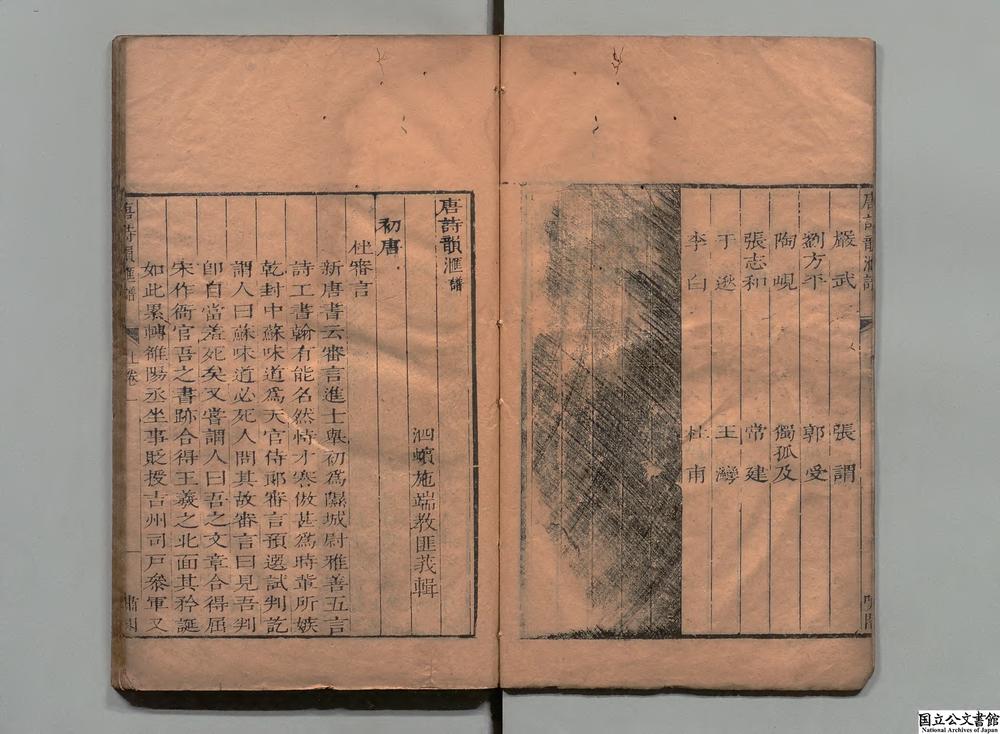 嚴武　張謂
劉方平　郭受
陶峴　獨孤及
張志和　常建
于逖　王灣
李白　杜甫
唐詩韻滙譜
泗蠙施端教匪莪輯
初唐
杜審言
新唐書云審言進士舉初爲隰城尉雅善五言
詩工書翰有能名然恃才謇傲甚爲時輩所嫉
乾封中蘇味道爲天官侍郞審言預選試判訖
謂人曰蘇味道必死人問其故審言曰見吾判
卽自當羞死矣又嘗謂人曰吾之文章合得屈
宋作衙官吾之書跡合得王羲之北面其矜誕
如此累轉雒陽丞坐事貶授吉州司戶叅軍又
唐詩韻滙譜
上卷
国立公文書館
National Archives of Japan